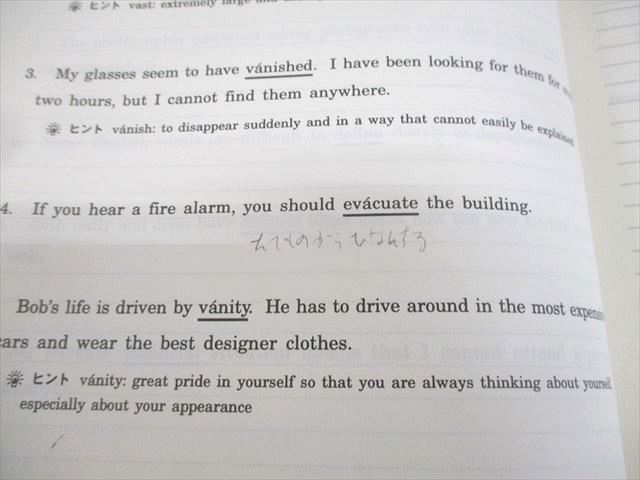 ヒント vast: extremely large
3. My glasses seem to have vánished. I have been looking for them for
two hours, but I cannot find them anywhere.
ヒント vánish: to disappear suddenly and in a way that cannot easily be explained
4. If you hear a fire alarm, you should evácuate the building.
からひなんする
Bob's life is driven by vánity. He has to drive around in the most
and wear the best designer clothes.
ヒント vánity: great pride in yourself so that you are always thinking about yourself
especially about your appearance